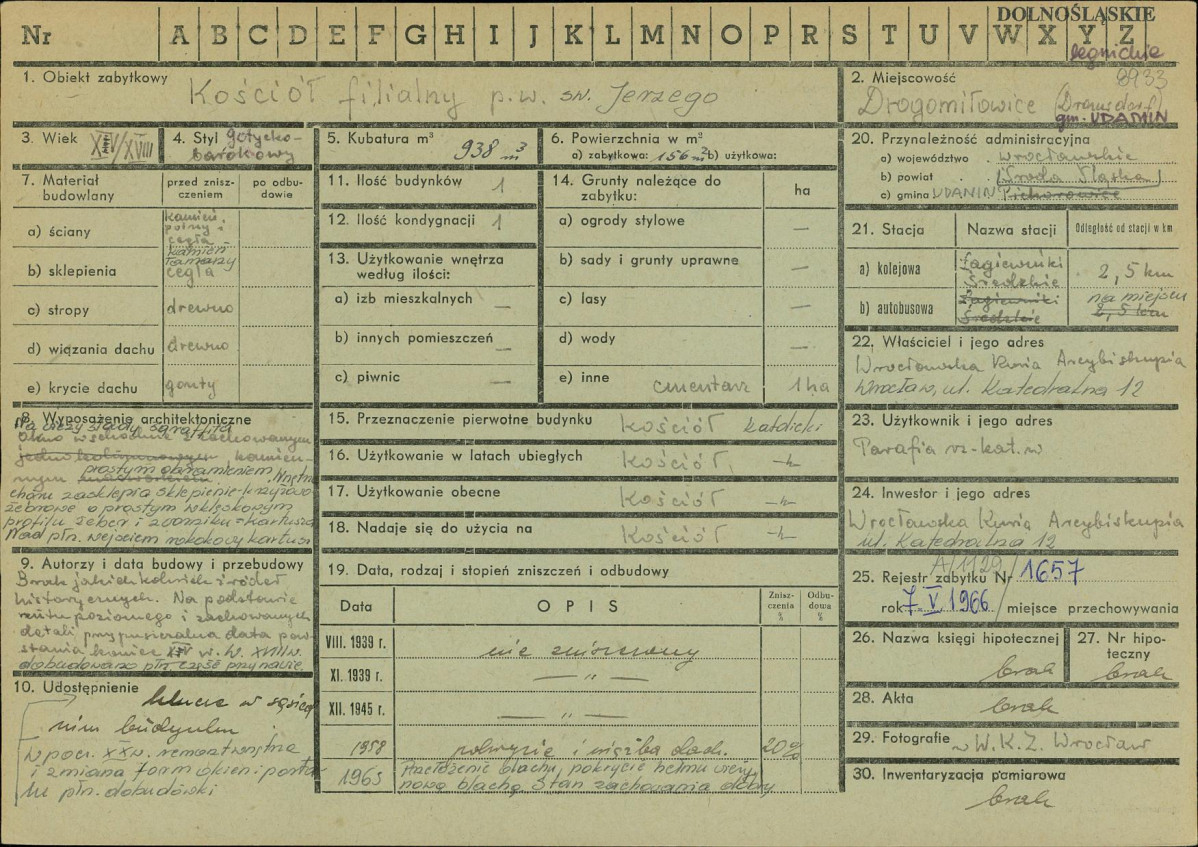 DOLNOŚLĄSKIE
Nr A B C D E F G H I J K L M N O P R S T U V W X Y Z
legnickie
1. Obiekt zabytkowy
Kościół filialny p.w. św. Jerzego
2. Miejscowość 8933
Drogomiłowice (Dromsdorf)
gm. UDANIN
3. Wiek XV/XVIII
4. Styl gotycko-
barokowy
5. Kubatura m³
938 m³
6. Powierzchnia w m²
a) zabytkowa: 156 m² b) użytkowa:
20. Przynależność administracyjna
a) województwo wrocławskie
b) powiat (Środa Śląska)
c) gmina UDANIN Pichorowice
7. Materiał budowlany
przed znisz-
czeniem
po odbu-
dowie
a) ściany
kamień
polny i
cegła
kamień
łamany
b) sklepienia cegła
c) stropy drewno
d) wiązania dachu drewno
e) krycie dachu gonty
11. Ilość budynków 1
12. Ilość kondygnacji 1
13. Użytkowanie wnętrza
według ilości:
a) izb mieszkalnych —
b) innych pomieszczeń —
c) piwnic —
14. Grunty należące do
zabytku:
ha
a) ogrody stylowe —
b) sady i grunty uprawne —
c) lasy —
d) wody —
e) inne cmentarz 1 ha
21. Stacja Nazwa stacji Odległość od stacji w km
a) kolejowa Łagiewniki
Średzkie 2,5 km
b) autobusowa Łagiewniki
Średzkie na miejscu
2,5 km
22. Właściciel i jego adres
Wrocławska Kuria Arcybiskupia
Wrocław, ul. Katedralna 12
8. Wyposażenie architektoniczne
Na wieży ślady sgraffita
Okno wschodnie z zachowanym
kamien-
prostym obramieniem
nym Wnętrze
chóru zasklepia sklepienie krzyżowo
żebrowe o prostym wklęskowym
profilu żeber i zworniku - kartusze
Nad płn. wejściem rokokowy kartusz
15. Przeznaczenie pierwotne budynku kościół katolicki
16. Użytkowanie w latach ubiegłych kościół —"—
17. Użytkowanie obecne kościół —"—
18. Nadaje się do użycia na kościół —"—
23. Użytkownik i jego adres
Parafia rz-kat. w
24. Inwestor i jego adres
Wrocławska Kuria Arcybiskupia
ul. Katedralna 12
9. Autorzy i data budowy i przebudowy
Brak jakichkolwiek źródeł
historycznych. Na podstawie
rzutu poziomego i zachowanych
detali przypuszczalna data pow-
stania koniec XV w. W XVIII w.
dobudowano płn. część przy nawie
19. Data, rodzaj i stopień zniszczeń i odbudowy
Data OPIS Znisz-
czenia
% Odbu-
dowa
%
VIII. 1939 r. nie zniszczony
XI. 1939 r. — " —
XII. 1945 r. — " —
1958 pokrycie i więźba dach. 20%
1963 Przełożenie blachy, pokrycie hełmu wieży
nową blachą. Stan zachowania dobry
A/1129/
25. Rejestr zabytku Nr 1657
rok 7. V 1966 miejsce przechowywania
26. Nazwa księgi hipotecznej
brak
27. Nr hipo-
teczny
brak
10. Udostępnienie klucze w sąsied
nim budynku
w pocz. XX w. remont wnętrza
i zmiana form okien i porta-
lu płn. dobudówki
28. Akta
brak
29. Fotografie W.K.Z. Wrocław
30. Inwentaryzacja pomiarowa
brak